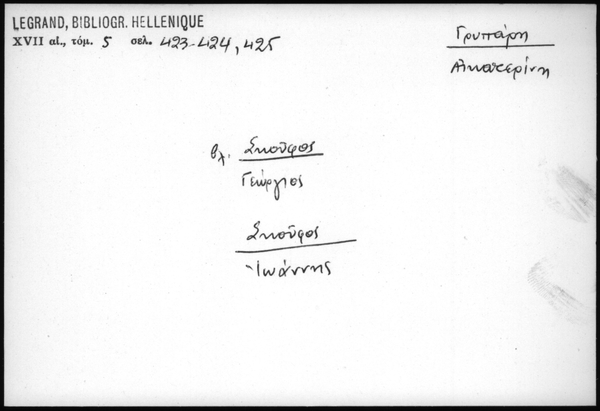 LEGRAND, BIBLIOGR. HELLENIQUE
XVII αἰ., τόμ. 5 σελ. 423-424, 425
Γρυπάρη
Αἰκατερίνη
βλ. Σκοῦφος
Γεώργιος
Σκοῦφος
Ἰωάννης